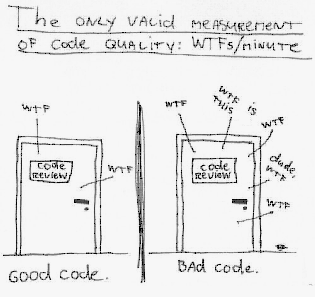 The ONLY VALID MEASUREMENT
OF Code QUALITY: WTFs/minute
WTF
Code
REVIEW
WTF
Good code.
WTF
WTF is
this
WTF
Code
REVIEW
dude,
WTF
WTF
BAd code.